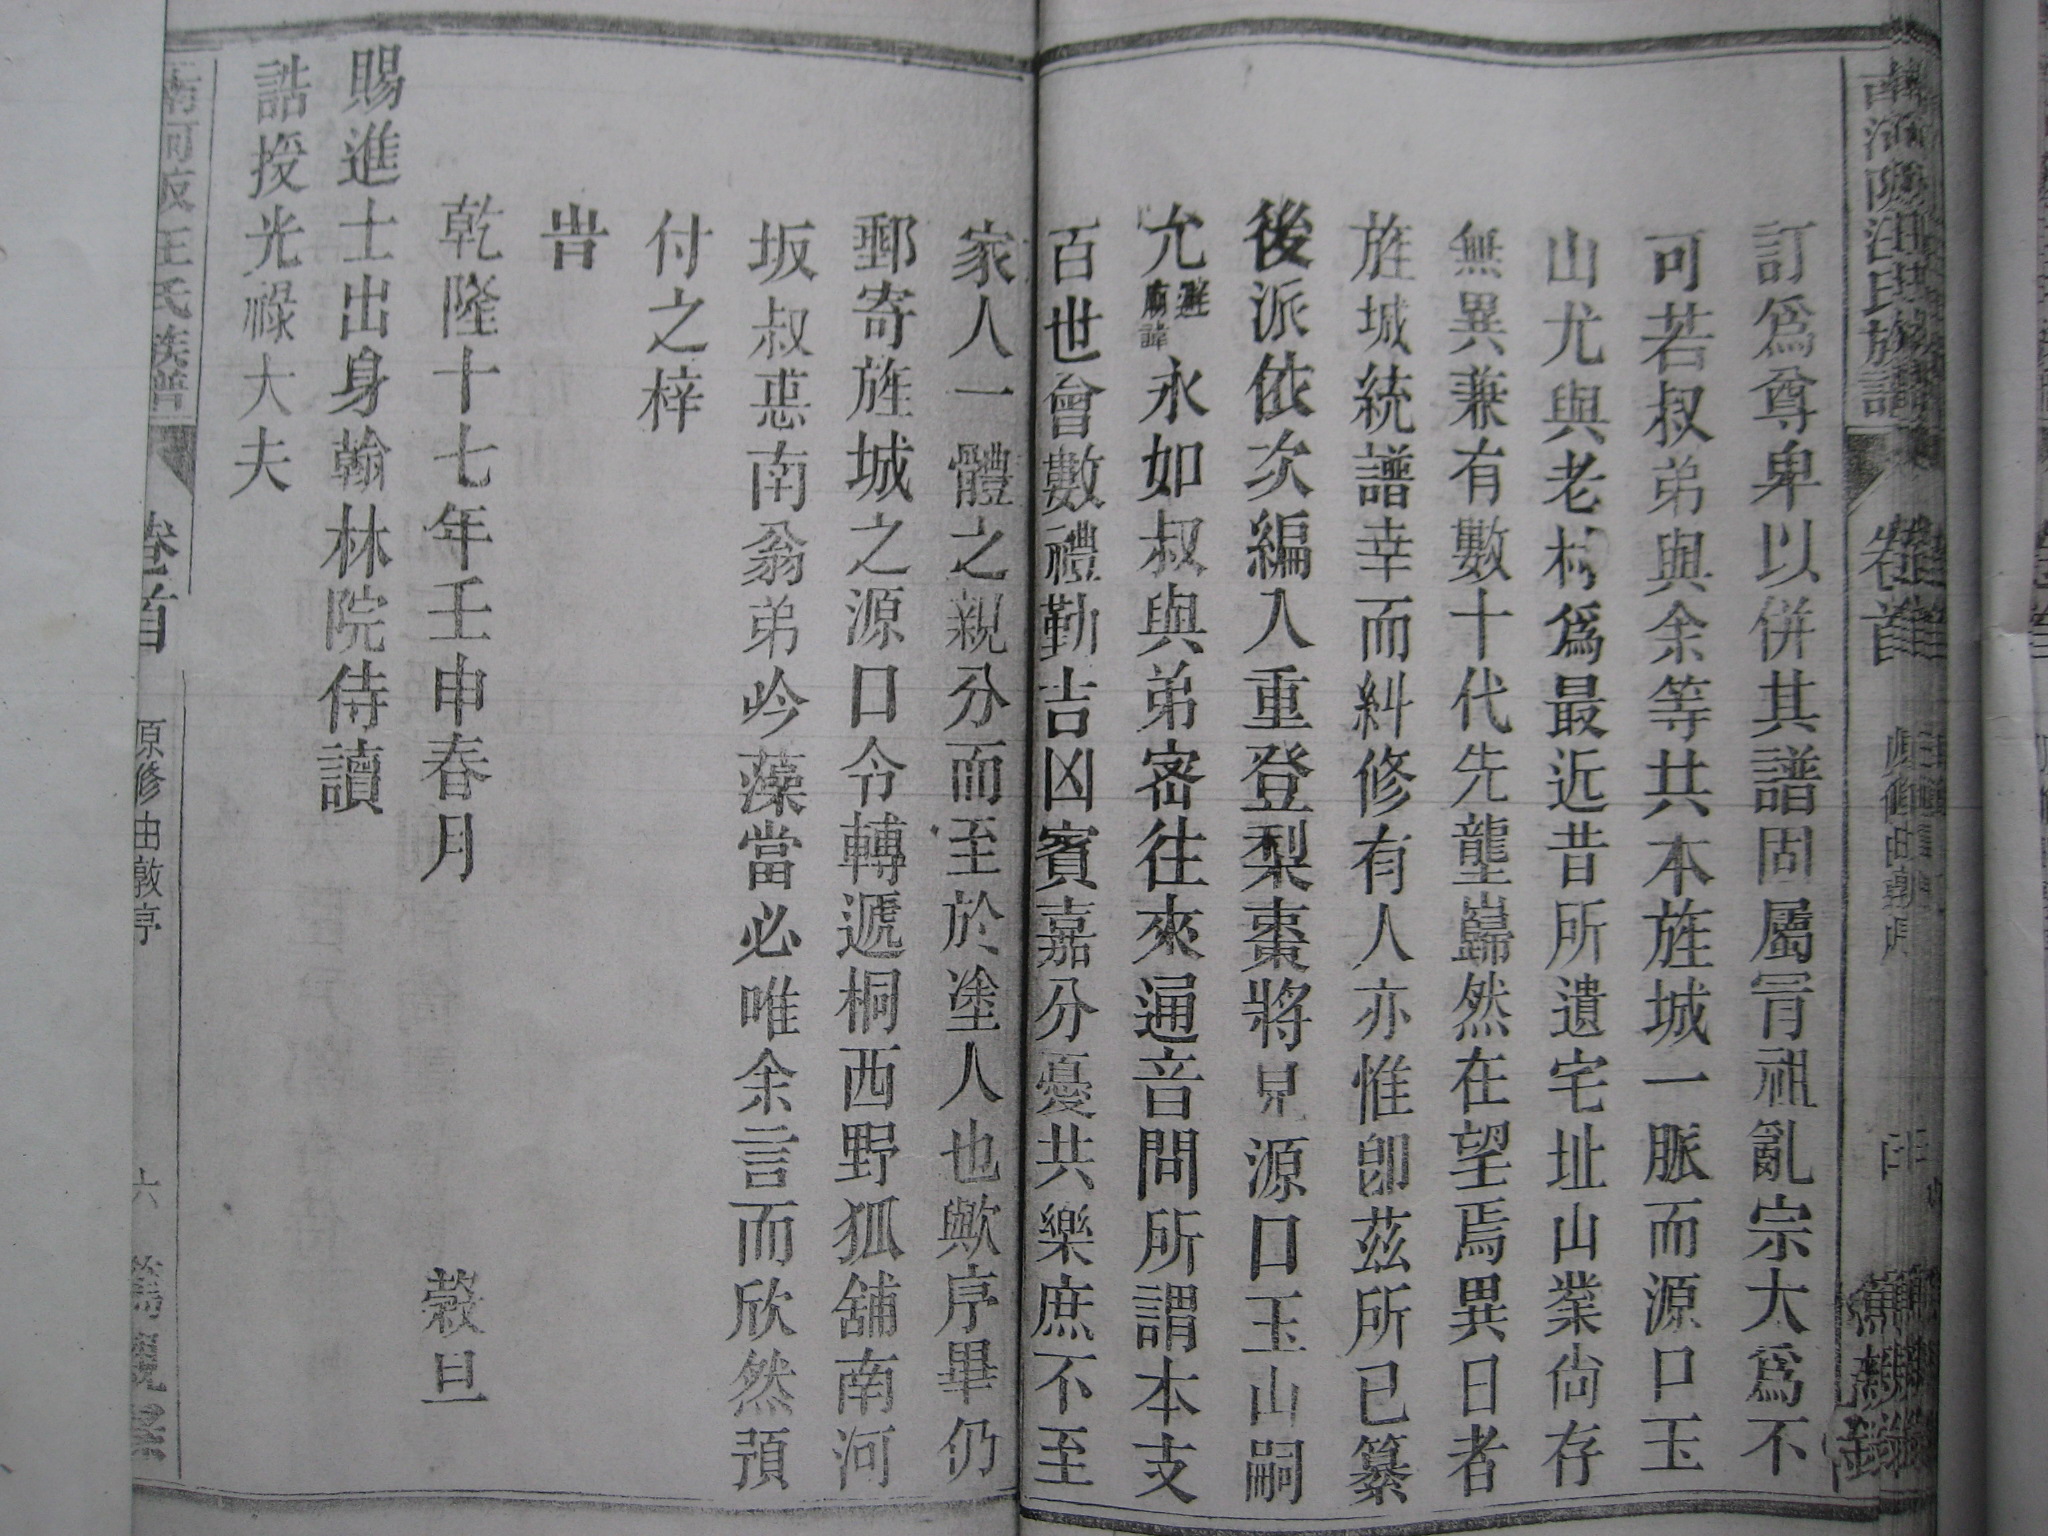 南河阪汪氏族譜
卷首
訂爲尊卑以併其譜固屬冐祖亂宗大爲不
可若叔弟與余等共本旌城一脈而源口玉
山尤與老村爲最近昔所遺宅址山業尙存
無異兼有數十代先壟巋然在望焉異日者
旌城統譜幸而糾修有人亦惟卽茲所已纂
後派依次編入重登梨棗將見源口玉山嗣
允避廟諱永如叔與弟宻往來通音問所謂本支
百世會數禮勤吉凶賓嘉分憂共樂庶不至
家人一體之親分而至於塗人也歟序畢仍
郵寄旌城之源口令轉遞桐西野狐舖南河
坂叔惡南翁弟吟藻當必唯余言而欣然預
付之梓
旹
乾隆十七年壬申春月 穀旦
賜進士出身翰林院侍讀
誥授光祿大夫
南河阪汪氏族譜
卷首
原修由敦序
六